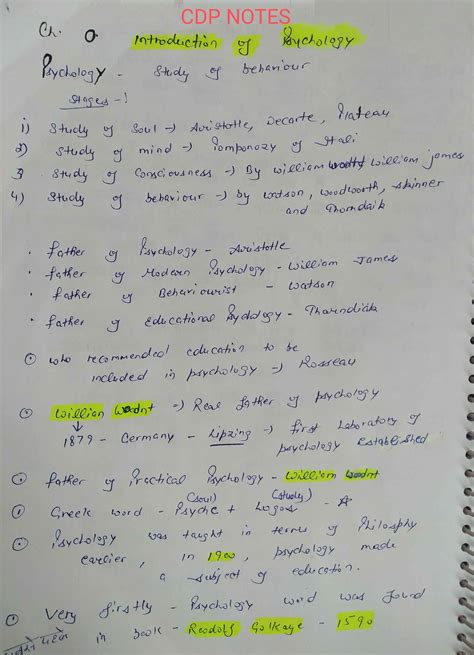 CDP NOTES
Ch. 0 Introduction of Psychology
Psychology - Study of behaviour
Stages -
1) Study of Soul -> Aristotle, Decarte, Plateau
2) Study of mind -> Pomponozy of Itali
3 Study of Consciousness -> By William Wodnt William James
4) Study of behaviour -> by Watson, Woodworth, Skinner
and Thorndaik
· Father of Psychology - Aristotle
· Father of Modern Psychology - William James
· Father of Behaviourist - Watson
· Father of educational Psychology - Thorndiack
who recommended education to be
included in psychology -> Rosseau
Willian Wodnt -> Real father of psychology
1879 - Germany - Lipzing -> first Laboratory of
psychology Established
Father of Practical Psychology - William Wodnt
(soul) (study)
Greek word - Psyche + Logos -
Psychology was taught in terms of Philosphy
earlier, in 1900, psychology made
a subject of education.
Very firstly - Psychology word was found
in book - Roodolf Golkaye - 1590
सबसे पहले